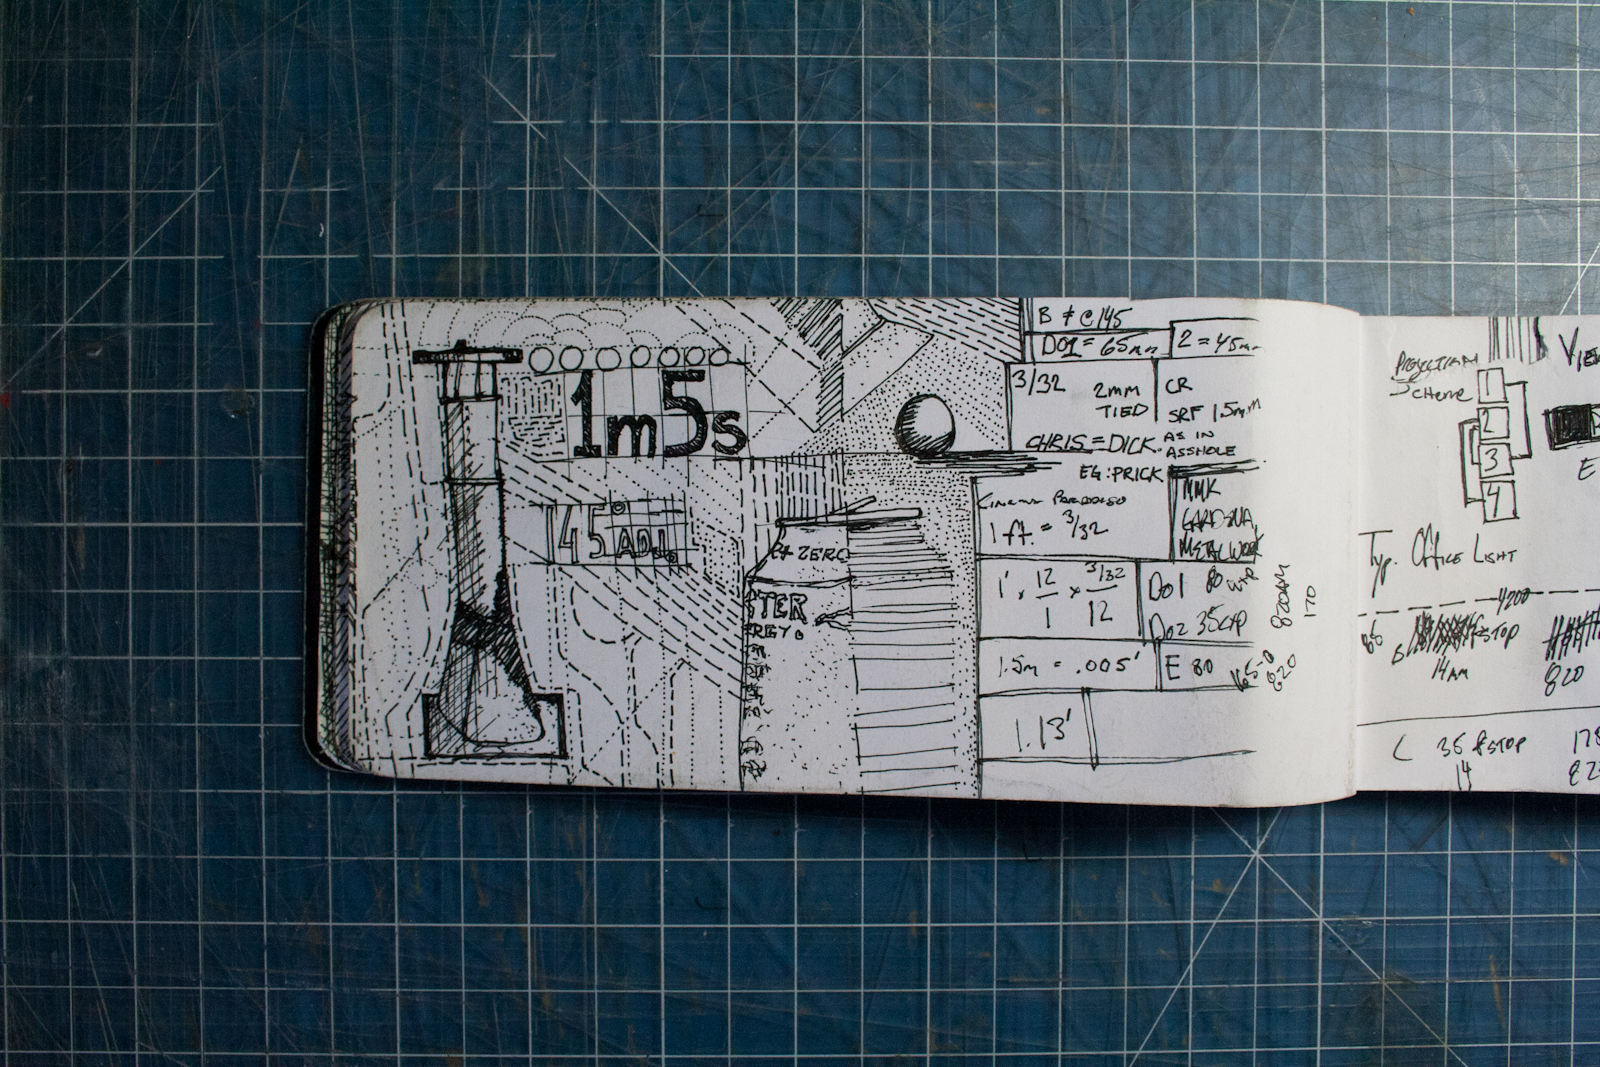 1m5s
145° ADJ.
ZERO
B ≠ C 145
D01 = 65mm
2 = 45mm
3/32
2mm
TIED
CR
SRF 1.5mm
CHRIS = DICK. AS IN
ASSHOLE
EG: PRICK
CINEMA PARADISO
1 ft. = 3/32
MMK
METALWORK
1' x 12/1 x 3/32/12
D01 80
D02 35
1.5m = .005'
E 80
1.13'
820AM
170
820
PROJECTION
SCHEME
1
2
3
4
VIEW
E
TYP. OFFICE LIGHT
4200
STOP
14AM
820
C 36 FSTOP
14